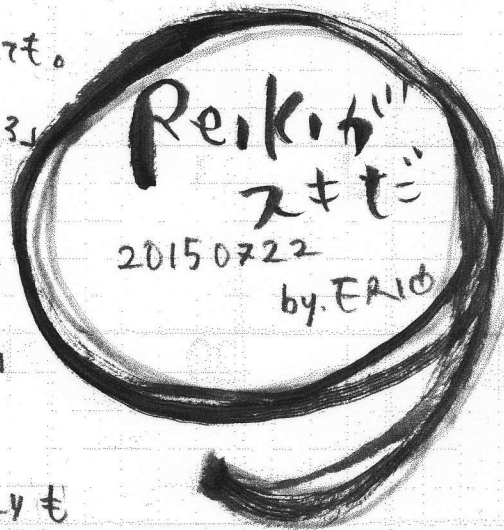 ても。
る」
Reikiが
スキだ
20150722
by. ERI
も